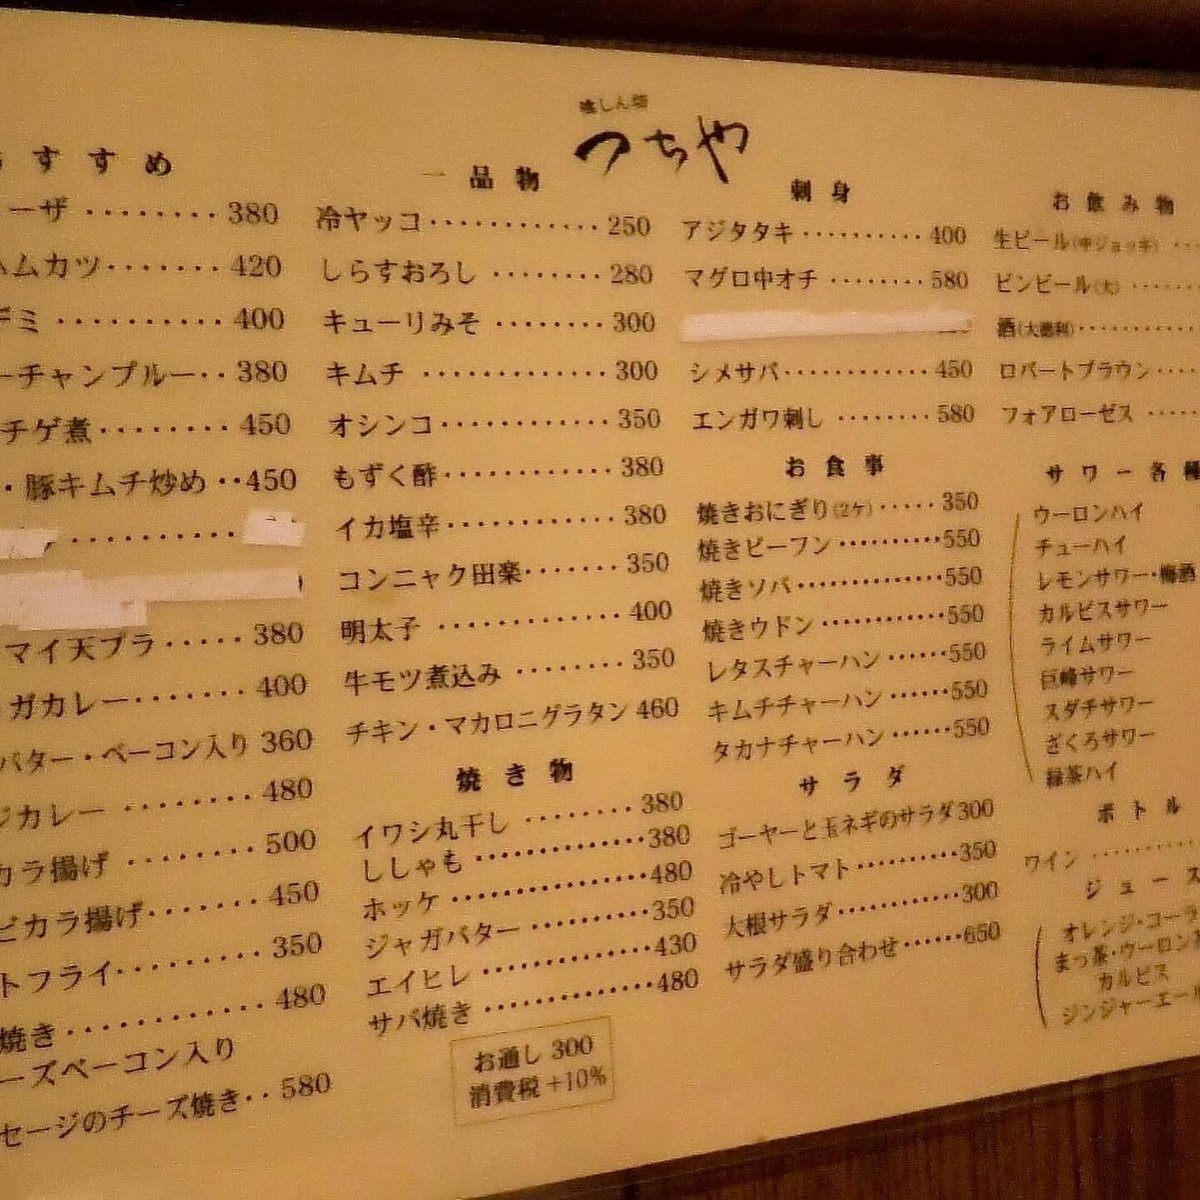 つちや
すすめ
ーザ ........ 380
ハムカツ ....... 420
ギミ .......... 400
ーチャンプルー .. 380
チゲ煮 ........ 450
・豚キムチ炒め .. 450
マイ天プラ ...... 380
ガカレー ....... 400
バター・ベーコン入り 360
ジカレー ........ 480
カラ揚げ ........ 500
ビカラ揚げ ....... 450
トフライ ......... 350
焼き ............ 480
ーズベーコン入り
セージのチーズ焼き .. 580
一品物
冷ヤッコ ............ 250
しらすおろし ........ 280
キューリみそ ........ 300
キムチ ............. 300
オシンコ ............ 350
もずく酢 ............ 380
イカ塩辛 ............ 380
コンニャク田楽 ....... 350
明太子 ............. 400
牛モツ煮込み ........ 350
チキン・マカロニグラタン 460
焼き物
イワシ丸干し ........ 380
ししゃも ............ 380
ホッケ .............. 480
ジャガバター ......... 350
エイヒレ ............ 430
サバ焼き ............ 480
お通し 300
消費税 +10%
刺身
アジタタキ .......... 400
マグロ中オチ ........ 580
シメサバ ............ 450
エンガワ刺し ........ 580
お食事
焼きおにぎり(2ケ) ..... 350
焼きビーフン .......... 550
焼きソバ ............. 550
焼きウドン ........... 550
レタスチャーハン ...... 550
キムチチャーハン ...... 550
タカナチャーハン ...... 550
サラダ
ゴーヤーと玉ネギのサラダ 300
冷やしトマト .......... 350
大根サラダ ............ 300
サラダ盛り合わせ ...... 650
お飲み物
生ビール(中ジョッキ) ...
ビンビール(大) ........
酒(大徳利) ............
ロバートブラウン ....
フォアローゼス .....
サワー各種
ウーロンハイ
チューハイ
レモンサワー・梅酒
カルピスサワー
ライムサワー
巨峰サワー
スダチサワー
ざくろサワー
緑茶ハイ
ボトル
ワイン ..........
ジュース
オレンジ・コーラ
まっ茶・ウーロン
カルピス
ジンジャーエール